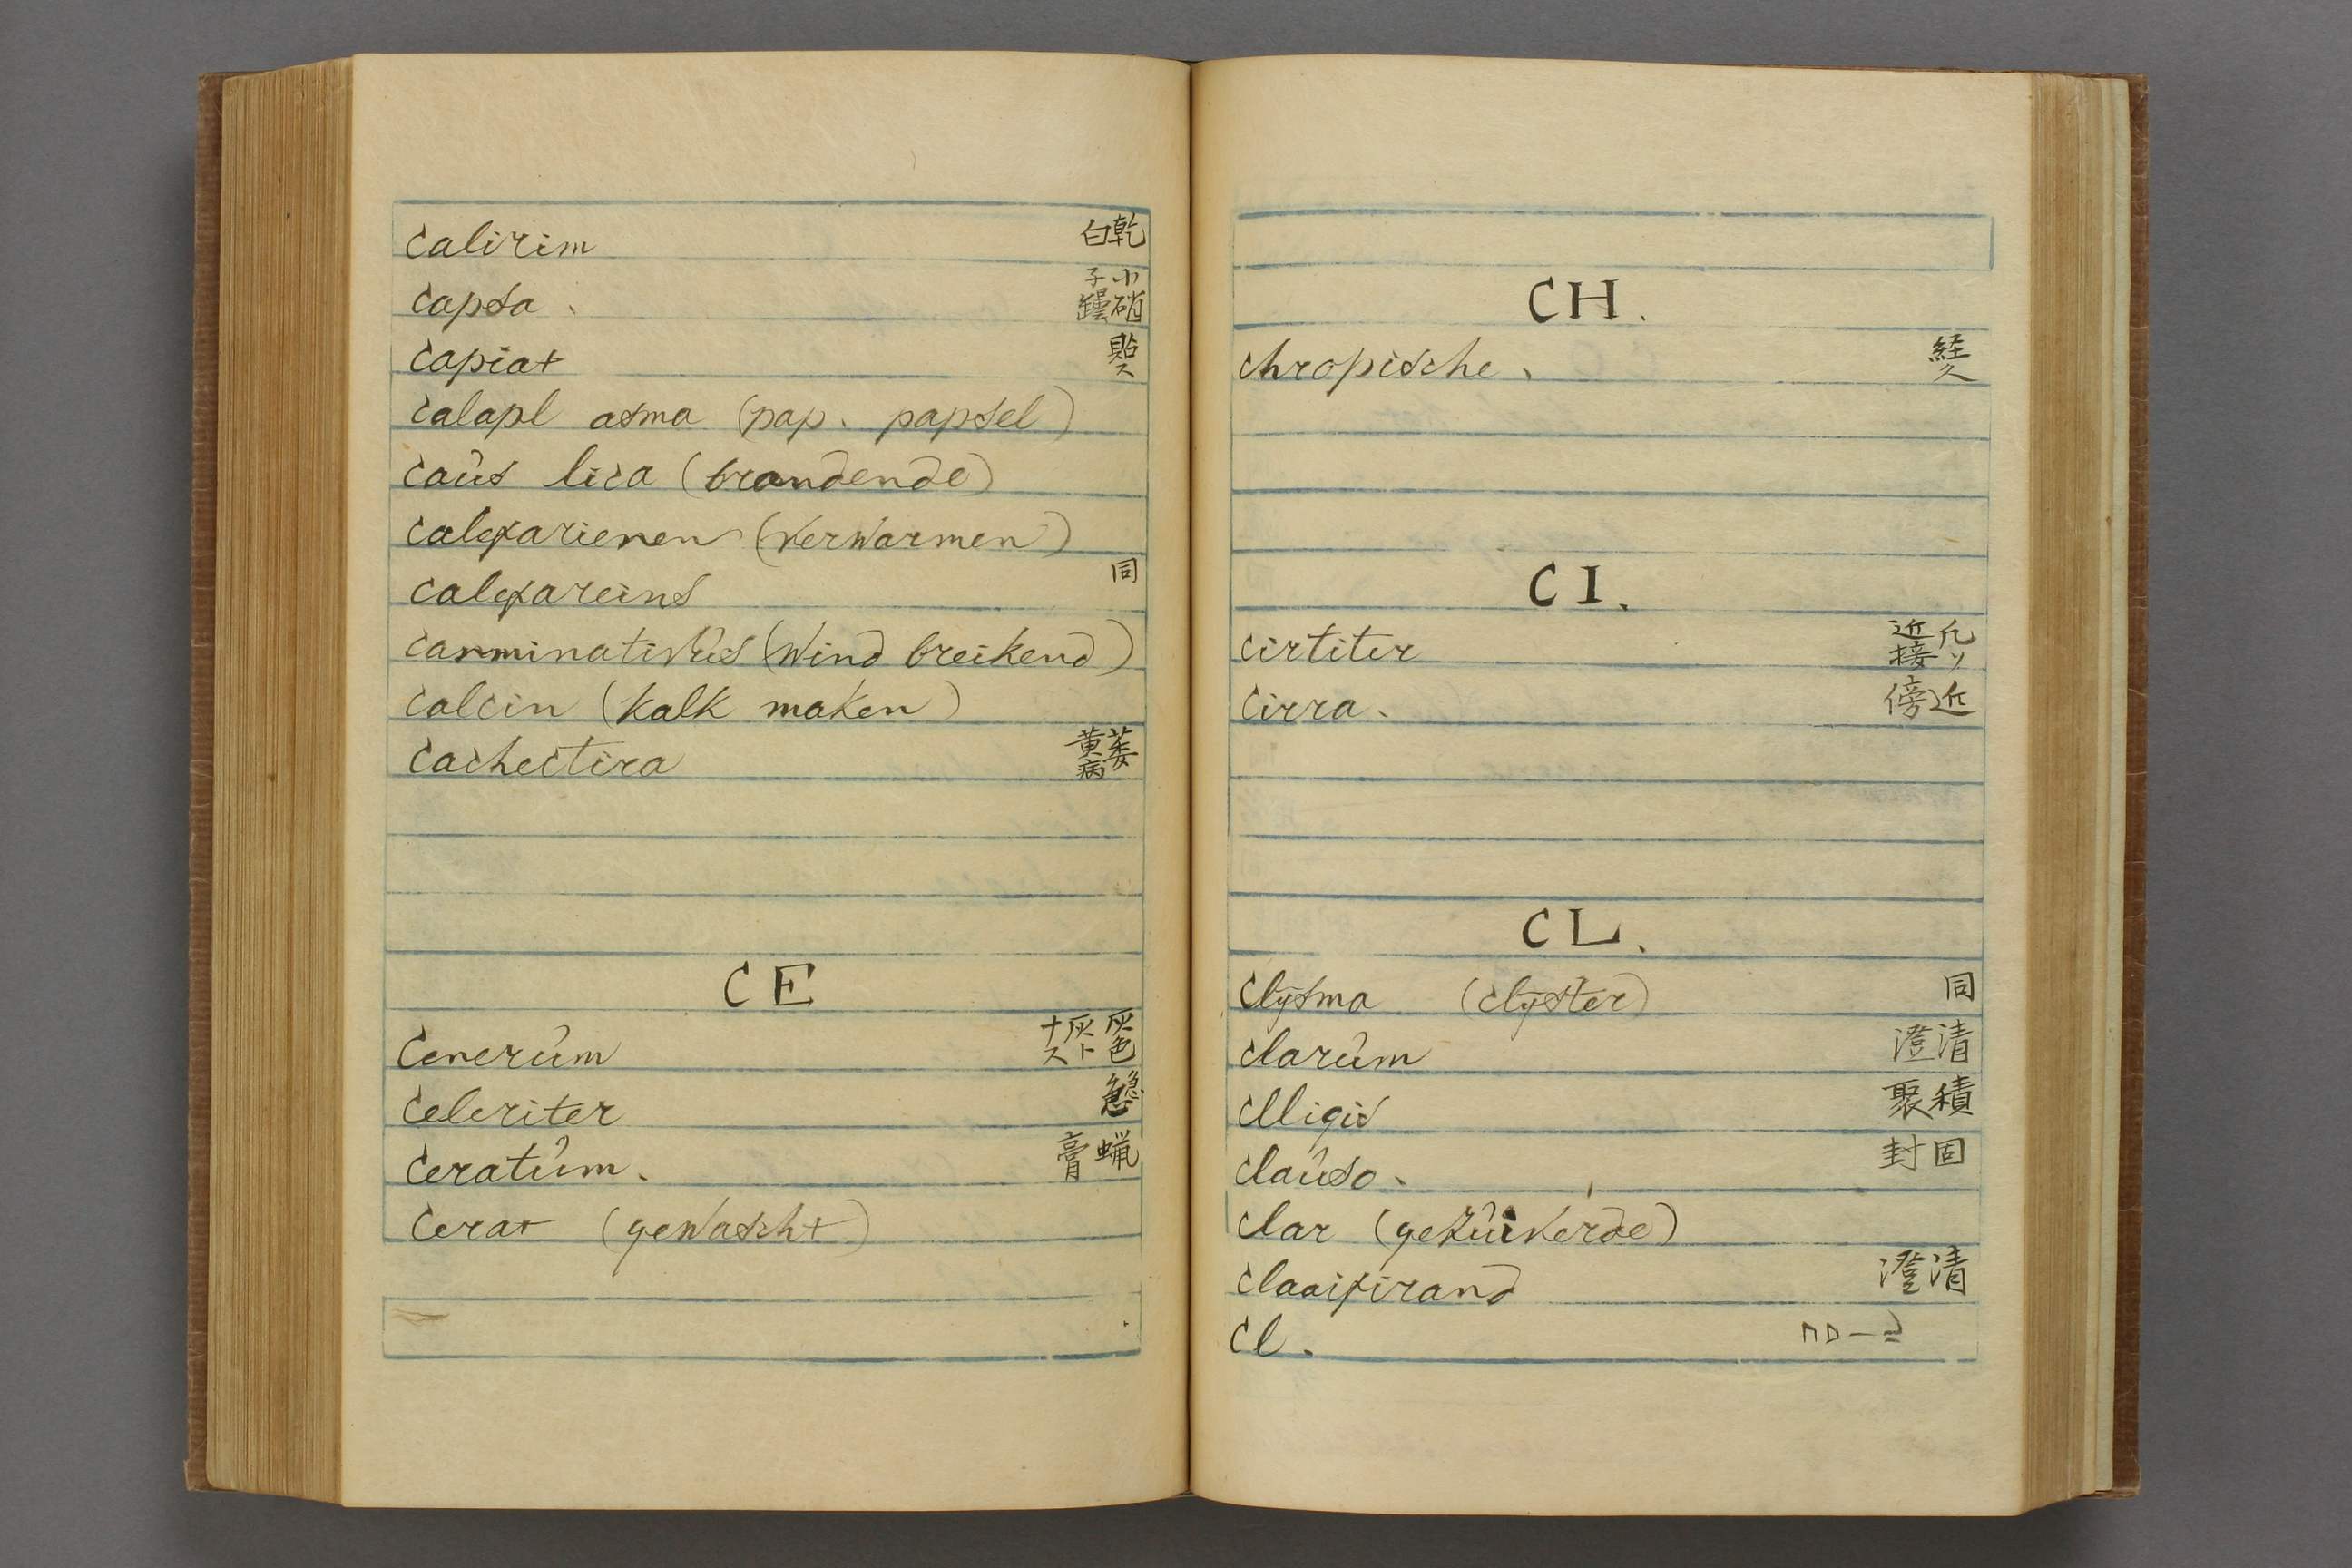 Calirim 乾白
Capsa、 小硝子罎
Capiat 貼ス
Calapl asma (pap. papsel)
Caûs lica (brandende)
Calefarienen (verwarmen)
Calefareins 同
Canminativûs (wind breikend)
Calcin (kalk maken)
Cachectira 萎黄病
CE
Cenerûm 灰色 灰トナス
Celeriter
Ceratûm、 蝋膏
Cerat (gewascht)
CH.
Chropische、 経久
CI.
Cirtiter 凡ソ近接
Cirra、 近傍
CL.
Clÿsma (Clÿster) 同
Clarûm 清澄
Clligis 積聚
Claûso、 固封
Clar
Claaifirand 清澄
Cl.